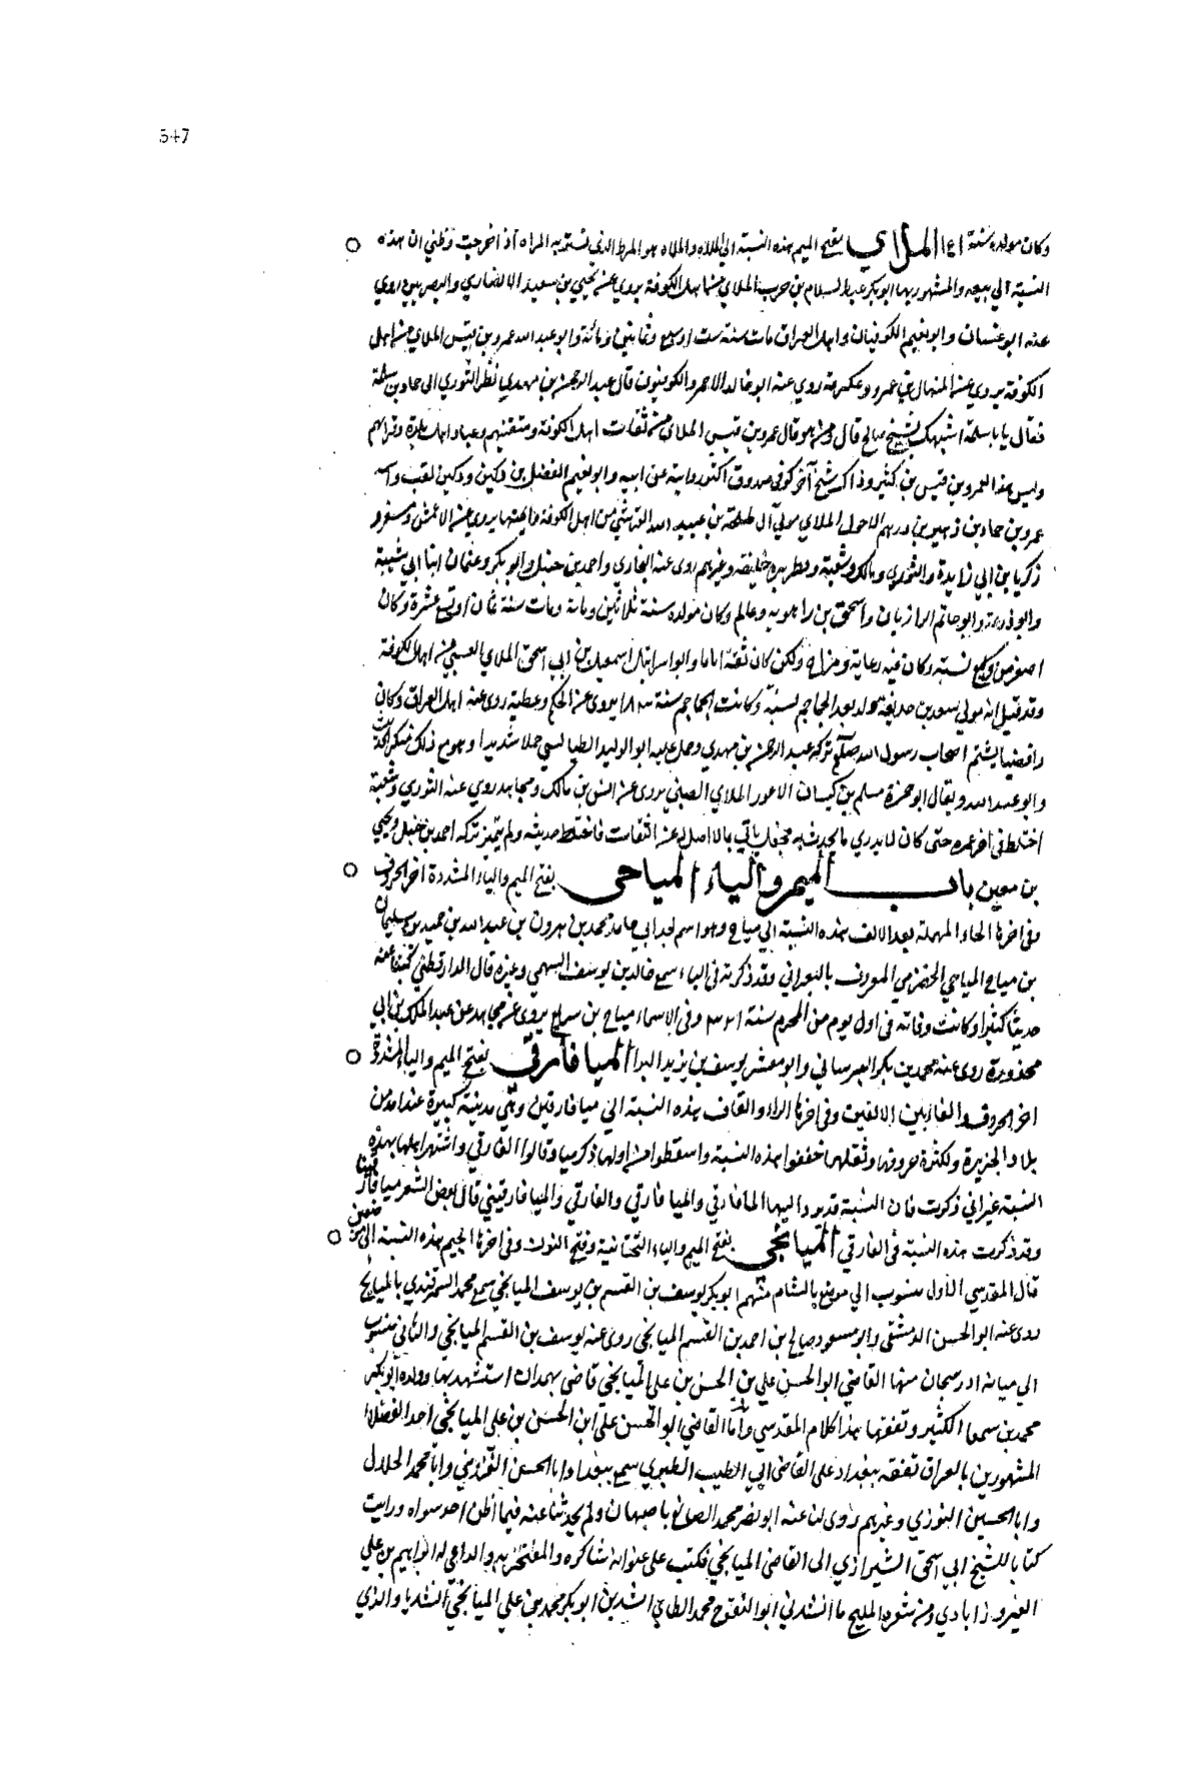 547
وكان مولده سنة ١٤١ الملاي بفتح الميم هذه النسبة الى الملاه والملاه هو المرط الذي تستتر به المراه اذا خرجت وظني ان هذه
النسبة الى بيعه والمشهور بها ابو بكر عبد السلام بن حرب الملاي من اهل الكوفة يروي عن يحيي بن سعيد الانصاري والبصريين روي
عنه ابو غسان وابو نعيم الكوفيان واهل العراق مات سنة ست او سبع وثمانين ومائة وابو عبد الله عمرو بن قيس الملاي من اهل
الكوفة يروي عن المنهال بن عمرو وعكرمة روي عنه ابو خالد الاحمر والكوفيون قال عبد الرحمن بن مهدي نظر الثوري الى حماد بن سلمة
فقال يا با سلمة اشبهك بشيخ صالح قال ومن هو قال عمرو بن قيس الملاي من ثقات اهل الكوفة ومتقنيهم وعباد اهل بلده وقرائهم
وليس هذا العمرو بن قيس بن كثير وذاك شيخ آخر كوفي صدوق اكثر رواية عن ابيه وابو نعيم الفضل بن دكين ودكين لقب واسمه
عمرو بن حماد بن زهير بن درهم الاحول الملاي مولي آل طلحة بن عبيد الله القرشي من اهل الكوفة يروي عن الاعمش ومسعر و
زكريا بن ابي زايدة والثوري ومالك وشعبة وفطر بن خليفه وغيرهم روى عنه البخاري واحمد بن حنبل وابو بكر وعثمان ابنا ابي شيبة
وابو زرعة وابو حاتم الرازيان واسحق بن راهويه وعالم وكان مولده سنة ثلاثين ومائة ومات سنة ثمان او تسع عشرة وكان
اصغر من وكيع بسنة وكان فيه دعابة ومزاح ولكن كان ثقة اماما وابو اسرائيل اسمعيل بن ابي اسحق الملاي العبسي من اهل الكوفة
وقد قيل انه مولي سعد بن حذيفة ولد بعد الجماجم لسنة وكانت الجماجم سنة ٨٣ يروى عن الحكم وعطية روى عنه اهل العراق وكان
رافضيا يشتم اصحاب رسول الله صلعم تركه عبد الرحمن بن مهدي وحمل عليه ابو الوليد الطيالسي حملا شديدا وهو مع ذلك منكر الحديث
وابو عبد الله ويقال ابو حمزة مسلم بن كيسان الاعور الملاي الضبي يروى عن انس بن مالك ومجاهد روي عنه الثوري وشعبة
اختلط في اخر عمره حتى كان لا يدري ما يحدث به فجعل ياتي بما لا اصل له عن الثقات فاختلط حديثه ولم يتميز تركه احمد بن حنبل ويحيي
بن معين باب الميم والياء المياحي بفتح الميم والياء المشددة اخر الحروف
وفي اخرها الحاء المهملة بعد الالف هذه النسبة الى مياح وهو اسم لجد ابي حامد محمد بن هرون بن عبد الله بن حميد بن سليمان
بن مياح المياحي الحضرمي المعروف بالبعراني وقد ذكرته في الباء سمع خالد بن يوسف السهمي وغيره قال الدارقطني كتبنا عنه
حديثا كثيرا وكانت وفاته في اول يوم من المحرم سنة ٣٢١ وفي الاسماء مياح بن سريع يروى عن مجاهد عن عبد الملك بن ابي
محذورة روى عنه محمد بن بكر البرساني وابو معشر يوسف بن يزيد البرا الميافارقي بفتح الميم والياء المشددة
اخر الحروف والفا بين الالفين وفي اخرها الراء والقاف هذه النسبة الى ميافارقين وهي مدينة كبيرة عند امد من
بلاد الجزيرة ولكثرة حروفها وثقلها خففوا هذه النسبة واسقطوا من اولها ذكر ميا وقالوا الفارقي واشتهر اهلها بهذه
النسبة غير اني ذكرت فان النسبة قد يرد اليها المافارقي والميا فارقي والفارقي والميا فارقيني قال بعض الشعر ميا فارقينا
وقد ذكرت هذه النسبة في الفارقي الميانجي بفتح الميم والياء التحتانية وفتح النون وفي اخرها الجيم هذه النسبة الى موضعين
قال المقدسي الاول منسوب الى موضع بالشام منهم ابو بكر يوسف بن القسم بن يوسف الميانجي سمع محمد السمرقندي بالميانج
روى عنه ابو الحسن الدمشقي وابو مسعود صالح بن احمد بن القسم الميانجي روى عنه يوسف بن القسم الميانجي والثاني منسوب
الى ميانه اذربيجان منها القاضي ابو الحسن علي بن الحسن بن على الميانجي قاضي بهمدان استشهد بها وولده ابو بكر
محمد بن سمعا الكثير وتفقها هذا كلام المقدسي واما القاضي ابو الحسن على ابن الحسن بن على الميانجي احد الفضلاء
المشهورين بالعراق تفقه ببغداد على القاضي ابي الطيب الطبري سمع ببغداد ابا الحسن القزويني وابا محمد الخلال
وابا الحسين التوزي وغيرهم روى لنا عنه ابو نصر محمد الصائغ باصبهان ولم يحدثنا عنه فيما أظن احد سواه ورايت
كتابا للشيخ ابي اسحق الشيرازي الى القاضي الميانجي فكتب على عنوانه شاكره والمفتخر به والداعي له ابراهيم بن علي
الفيروزابادي ومن شعره المليح ما انشدني ابو الفتوح محمد الطائي انشدنى ابو بكر محمد بن علي الميانجي انشدنا والدي